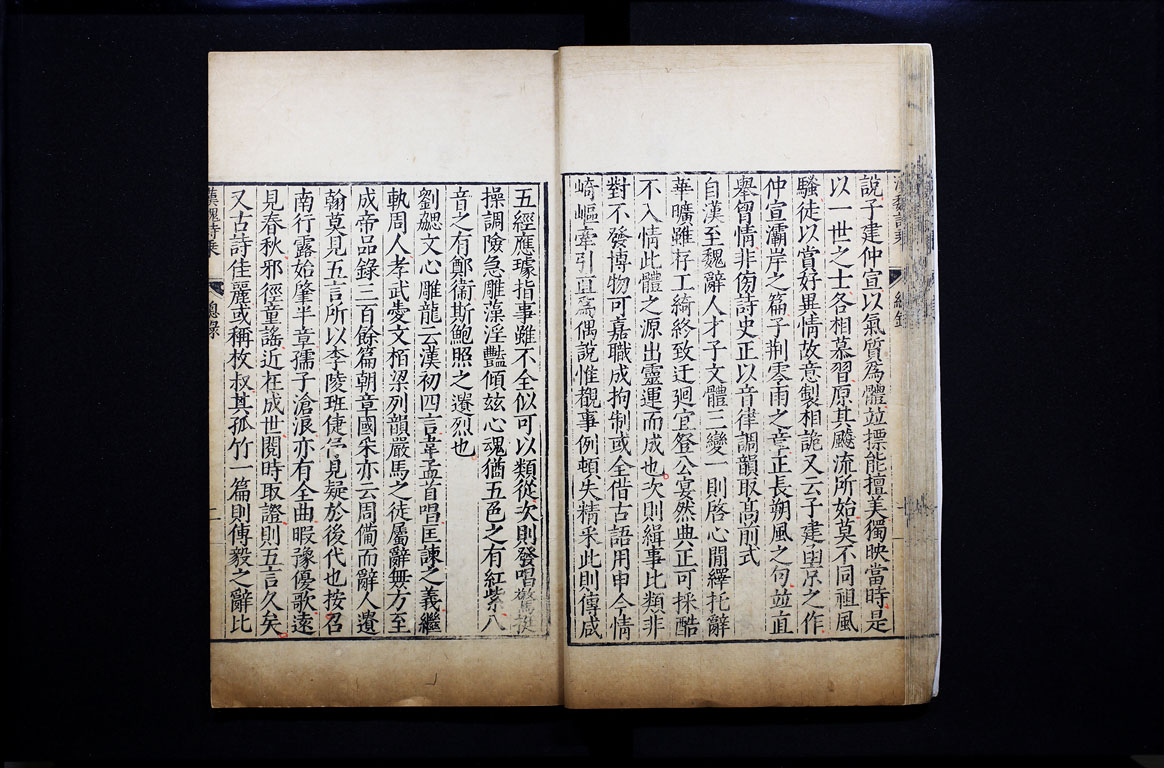 漢魏詩乘
總錄
說子建仲宣以氣質爲體並摽能擅美獨映當時是
以一世之士各相慕習原其飈流所始莫不同祖風
騷徒以賞好異情故意製相詭又云子建函京之作
仲宣灞岸之篇子荆零雨之章正長朔風之句並直
舉胷情非傍詩史正以音律調韻取髙前式
自漢至魏辭人才子文體三變一則啓心閒繹托辭
華曠雖存工綺終致迂廻宜登公宴然典正可採酷
不入情此體之源出靈運而成也次則緝事比類非
對不發博物可嘉職成拘制或全借古語用申今情
崎嶇牽引直爲偶說惟覩事例頓失精釆此則傅咸
五經應璩指事雖不全似可以類從次則發唱驚挺
操調險急雕藻淫艷傾炫心魂猶五色之有紅紫八
音之有鄭衞斯鮑照之遺烈也
劉勰文心雕龍云漢初四言韋孟首唱匡諫之義繼
軌周人孝武愛文栢梁列韻嚴馬之徒屬辭無方至
成帝品錄三百餘篇朝章國采亦云周備而辭人遺
翰莫見五言所以李陵班倢伃見疑於後代也按召
南行露始肇半章孺子滄浪亦有全曲暇豫優歌遠
見春秋邪徑童謠近在成世閱時取證則五言久矣
又古詩佳麗或稱枚叔其孤竹一篇則傅毅之辭比
漢魏詩乘
總錄
二